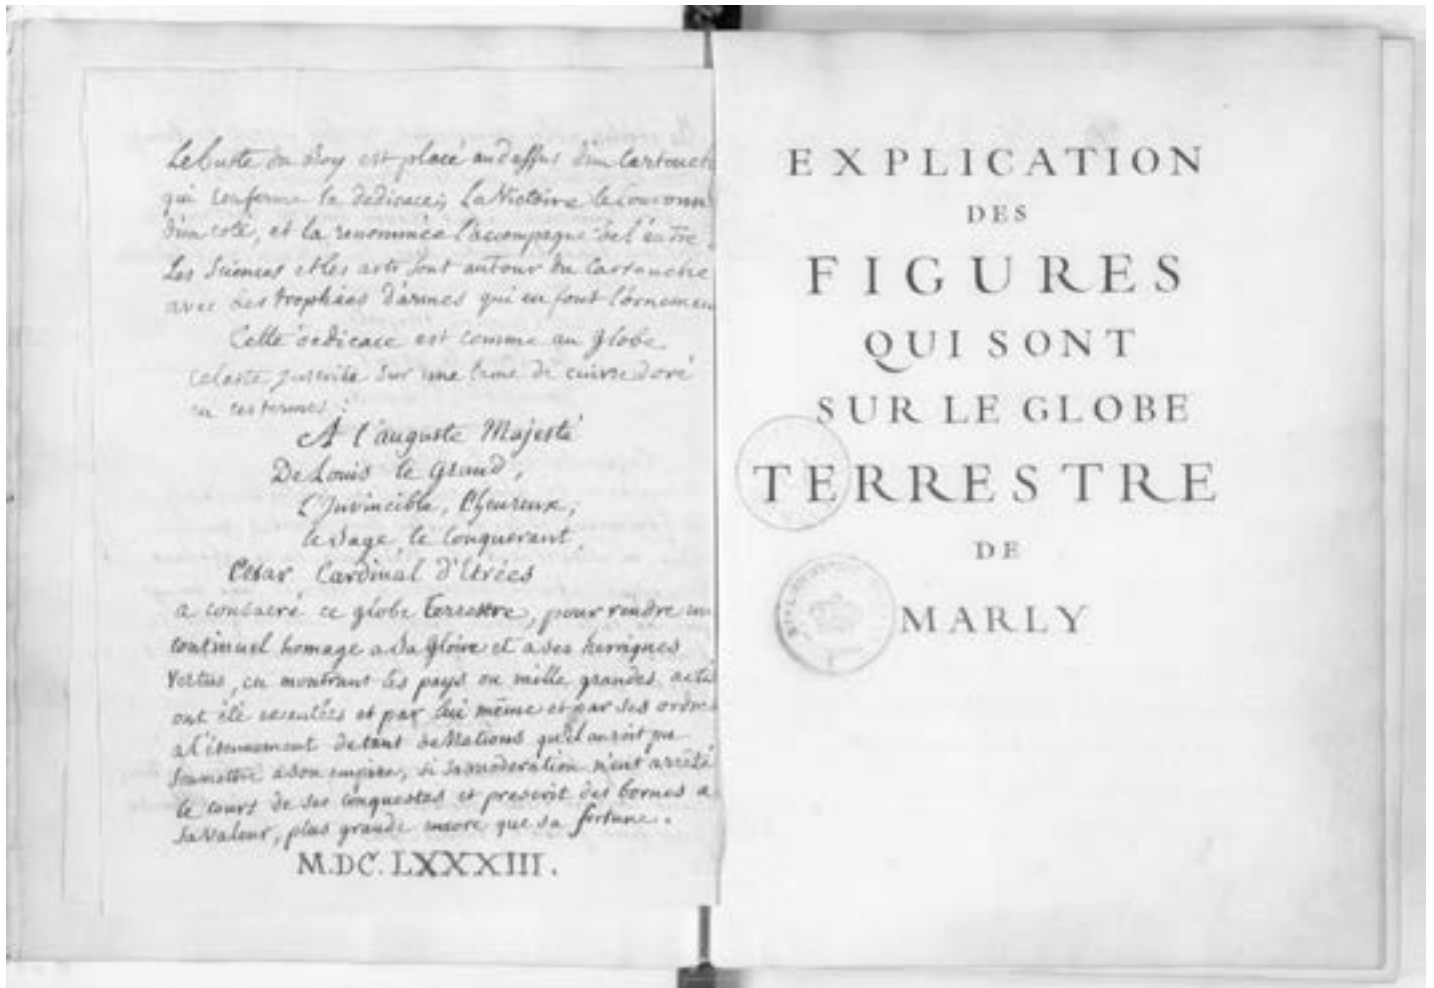 Le buste du Roy est placé au dessus d'un Cartouch
qui renferme la dedicace; La Victoire le Couronn
d'un coté, et la renommée l'accompagne de l'autre.
Les Sciences et les arts sont autour du Cartouche
avec des trophées d'armes qui en font l'ornemen
Cette dedicace est comme au globe
celeste inscrite sur une lame de cuivre doré
en ces termes:
A l'auguste Majesté
De Louis le Grand,
l'Invincible, l'heureux,
le Sage, le Conquerant,
Cesar Cardinal d'Etrées
a consacré ce globe Terrestre, pour rendre un
continuel homage a sa gloire et a ses heroiques
Vertus, en montrant les pays ou mille grandes acti
ont été executées et par lui même et par ses ordre
a l'étonnement de tant de Nations qu'il auroit pu
soumettre a son empire, si sa moderation n'eut arrêté
le cours de ses conquestes et prescrit des bornes a
sa valeur, plus grande encore que sa fortune.
M.DC.LXXXIII.
EXPLICATION
DES
FIGURES
QUI SONT
SUR LE GLOBE
TERRESTRE
DE
MARLY